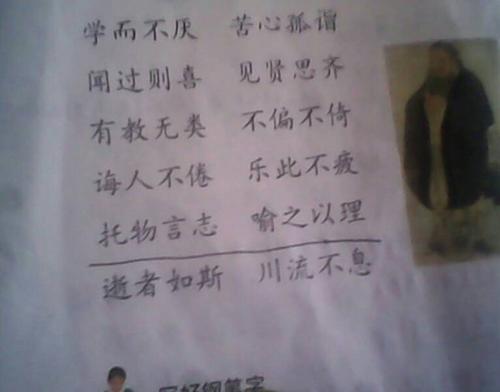 学而不厌 苦心孤诣
闻过则喜 见贤思齐
有教无类 不偏不倚
诲人不倦 乐此不疲
托物言志 喻之以理
逝者如斯 川流不息
写好钢笔字